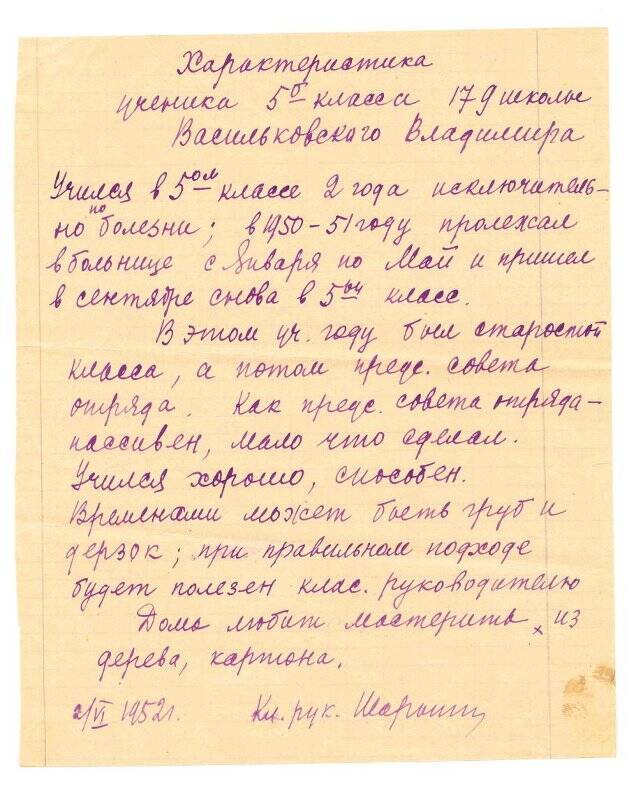 Характеристика
ученика 5го класса 179 школы
Васильковского Владимира
Учился в 5ом классе 2 года исключитель-
но по болезни; в 1950-51 году пролежал
в больнице с Января по Май и пришел
в сентябре снова в 5ый класс.
В этом уч. году был старостой
класса, а потом предс. совета
отряда. Как предс. совета отряда-
пассивен, мало что сделал.
Учился хорошо, способен.
Временами может быть груб и
дерзок; при правильном подходе
будет полезен клас. руководителю
Дома любит мастерить x из
дерева, картона.
2/VI 1952г. Кл. рук.